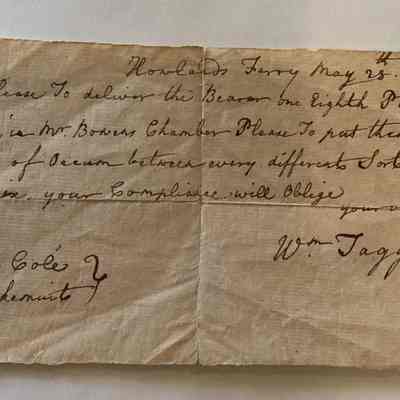 Howlands Ferry May 25th
lease To deliver the Bearer one Eighth P
is in Mr. Bowers Chamber Please To put the
of Occum between every differents Sort
ix your Compliance will Oblige
your
Wm Tagg
Cole